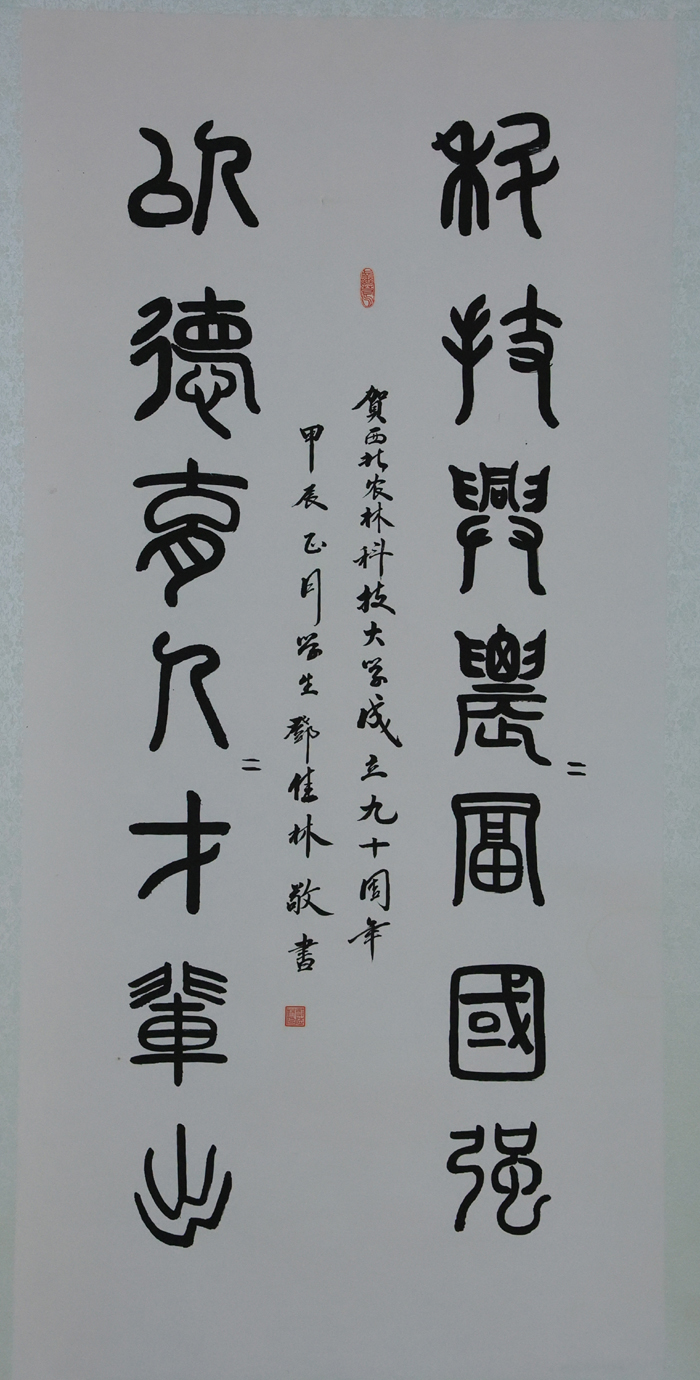 科技興農〻富國强
以德育人〻才輩出
賀西北农林科技大学成立九十周年
甲辰正月学生鄧佳林敬書